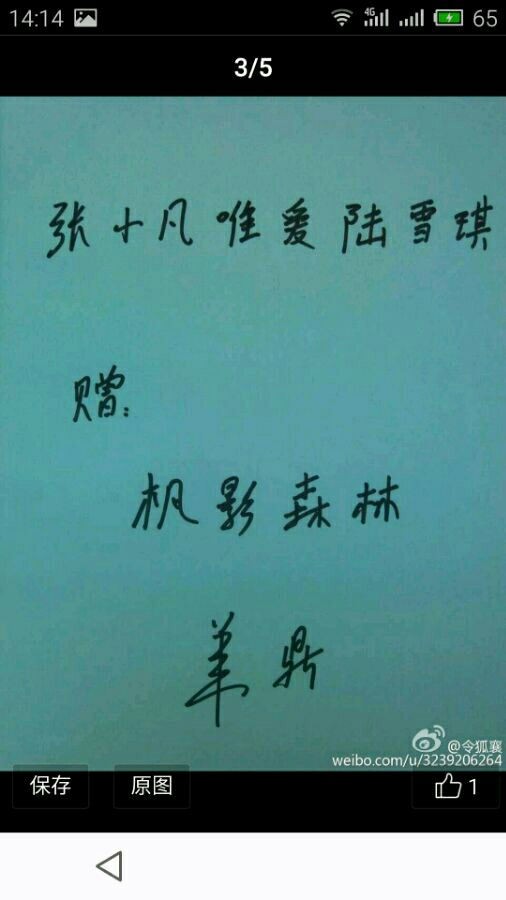 14:14 4G 65
3/5
张小凡唯爱陆雪琪
赠:
枫影森林
萧鼎
@令狐襄
weibo.com/u/3239206264
保存 原图 1